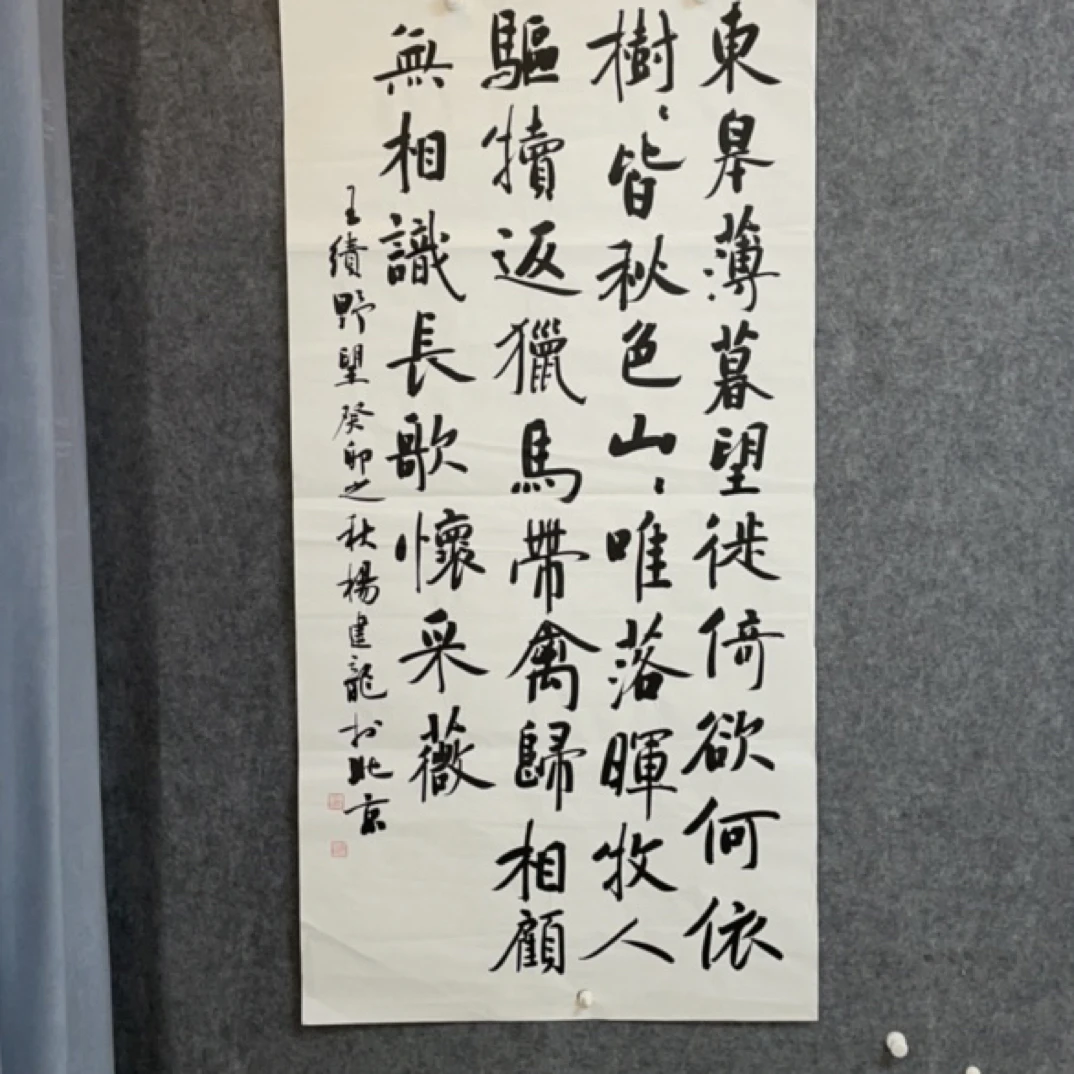 東皋薄暮望徙倚欲何依
樹〻皆秋色山〻唯落暉牧人
驅犢返獵馬帶禽歸相顧
無相識長歌懷采薇
王績野望癸卯之秋楊建龍於北京